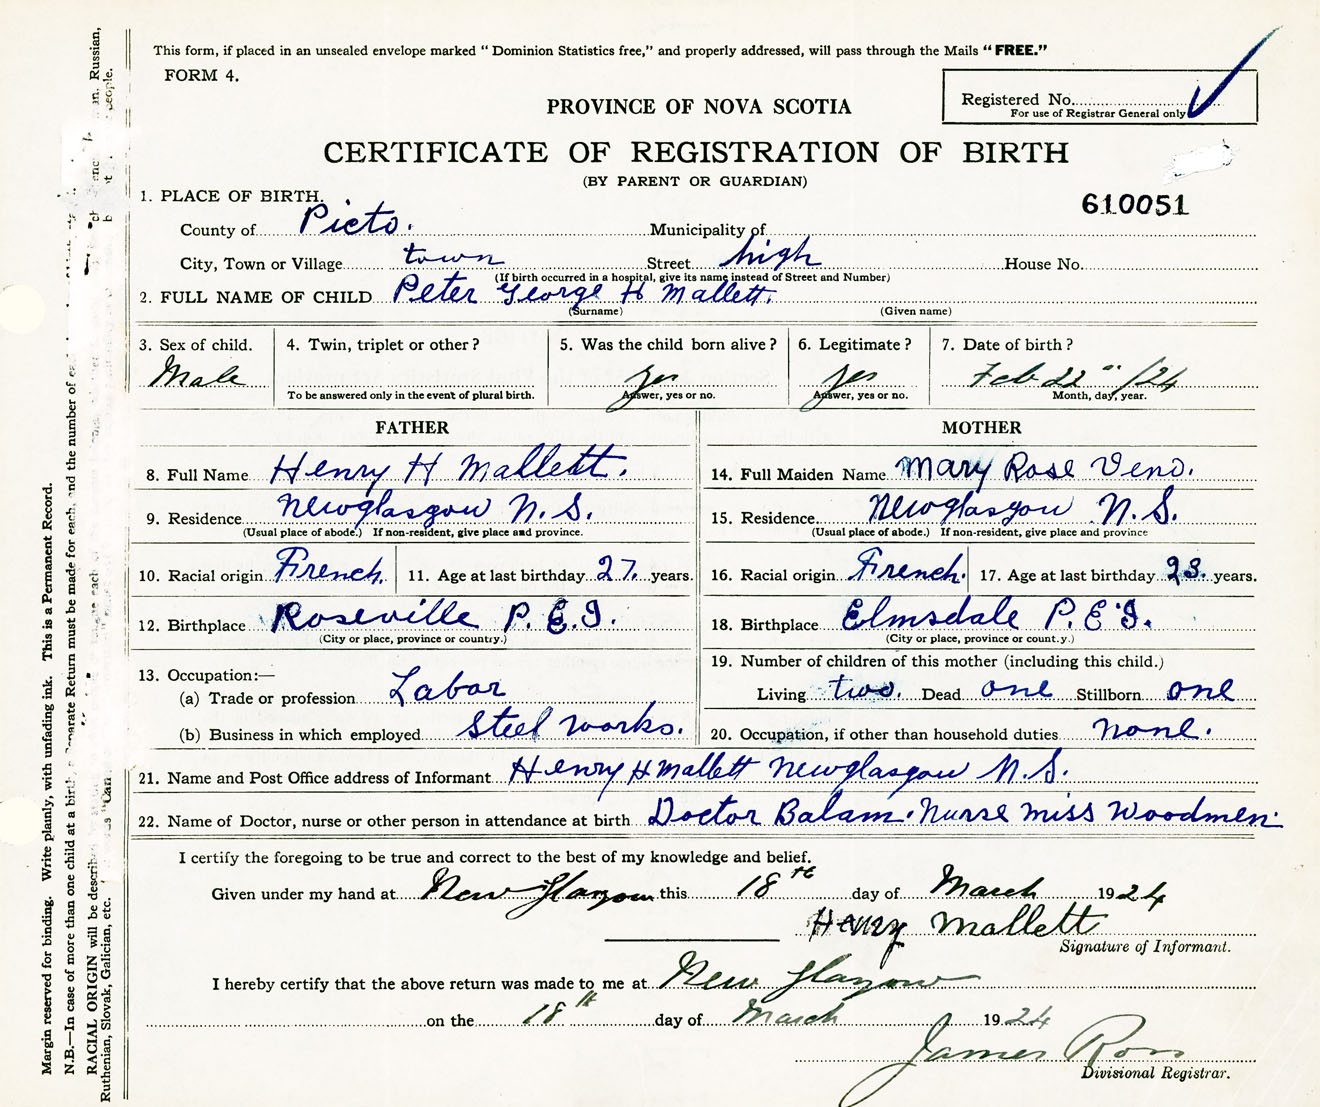 This form, if placed in an unsealed envelope marked "Dominion Statistics free," and properly addressed, will pass through the Mails "FREE."
FORM 4.
Registered No.
For use of Registrar General only
PROVINCE OF NOVA SCOTIA
CERTIFICATE OF REGISTRATION OF BIRTH
(BY PARENT OR GUARDIAN)
610051
1. PLACE OF BIRTH.
County of Picto. Municipality of
City, Town or Village town Street high House No.
(If birth occurred in a hospital, give its name instead of Street and Number)
2. FULL NAME OF CHILD Peter George H Mallett.
(Surname) (Given name)
3. Sex of child. 4. Twin, triplet or other? 5. Was the child born alive? 6. Legitimate? 7. Date of birth?
Male yes yes Feb 22 /24
To be answered only in the event of plural birth. Answer, yes or no. Answer, yes or no. Month, day, year.
FATHER MOTHER
8. Full Name Henry H Mallett. 14. Full Maiden Name Mary Rose Veno.
9. Residence Newglasgow N.S. 15. Residence Newglasgow N.S.
(Usual place of abode.) If non-resident, give place and province. (Usual place of abode.) If non-resident, give place and province
10. Racial origin French. 11. Age at last birthday 27. years. 16. Racial origin French. 17. Age at last birthday 23. years.
12. Birthplace Roseville P.E.I. 18. Birthplace Elmsdale P.E.I.
(City or place, province or country.) (City or place, province or count.y.)
13. Occupation:— 19. Number of children of this mother (including this child.)
(a) Trade or profession Labor Living two. Dead one Stillborn one
(b) Business in which employed Steel works. 20. Occupation, if other than household duties none.
21. Name and Post Office address of Informant Henry H Mallett Newglasgow N.S.
22. Name of Doctor, nurse or other person in attendance at birth Doctor Balam. Nurse miss Woodmen.
I certify the foregoing to be true and correct to the best of my knowledge and belief.
Given under my hand at New Glasgow this 18th day of March 1924
Henry Mallett
Signature of Informant.
I hereby certify that the above return was made to me at New Glasgow
on the 18th day of March 1924
James Ross
Divisional Registrar.
Margin reserved for binding. Write plainly, with unfading ink. This is a Permanent Record.
N.B.—In case of more than one child at a birth, a Separate Return must be made for each, and the number of
RACIAL ORIGIN will be described Russian,
Ruthenian, Slovak, Galician, etc. as "Can people.